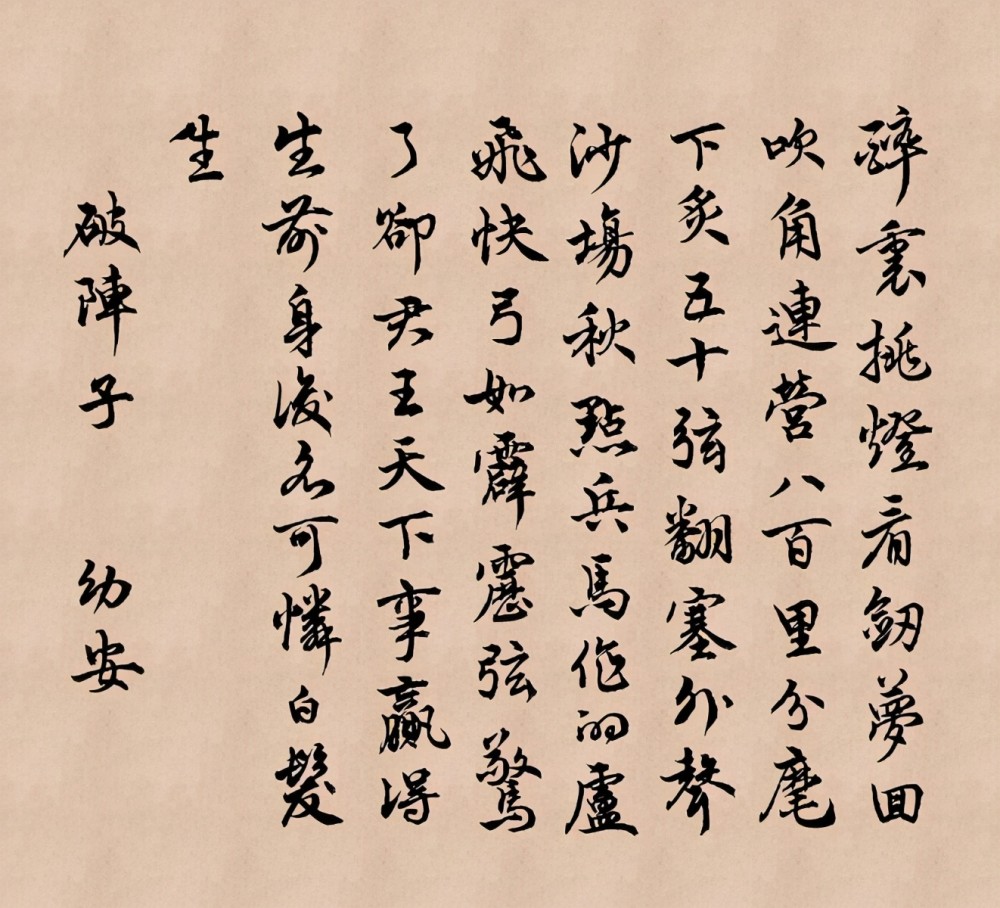 醉裏挑燈看劒夢回
吹角連營八百里分麾
下炙五十弦翻塞外聲
沙場秋點兵馬作的盧
飛快弓如霹靂弦驚
了卻君王天下事贏得
生前身後名可憐白髮
生
破陣子 幼安